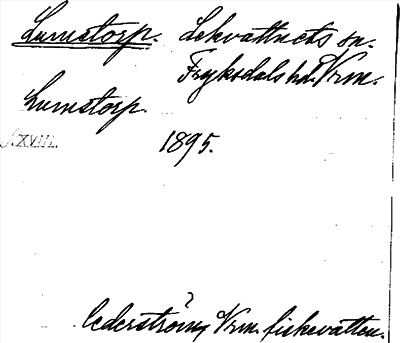 Lumstorp. Lekvattnets sn.
Fryksdals hd. Vrm.
Lumstorp.
XVIII. 1895.
?
Cederström, Vrm. fiskevatten.